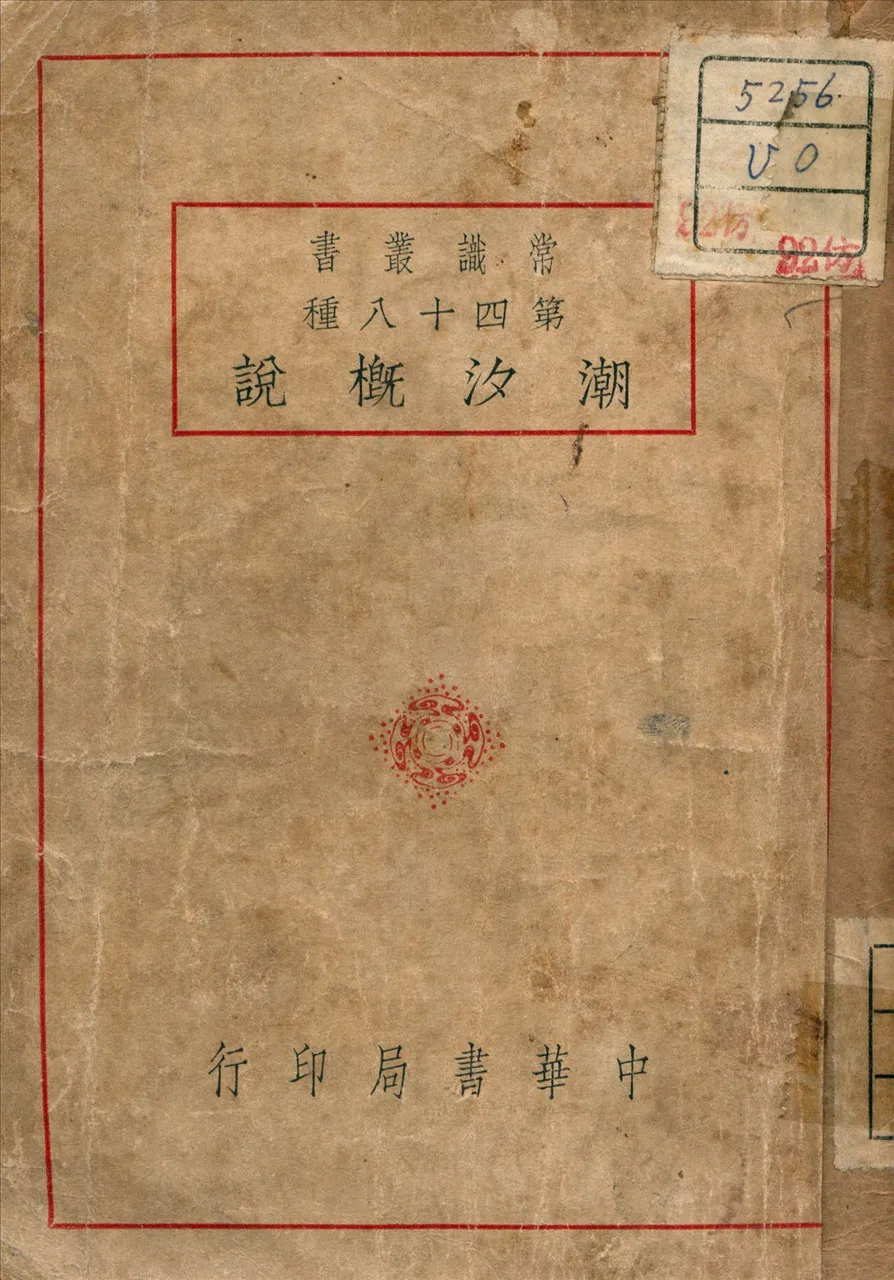 常識叢書
第四十八種
潮汐概說
中華書局印行
5256
U0